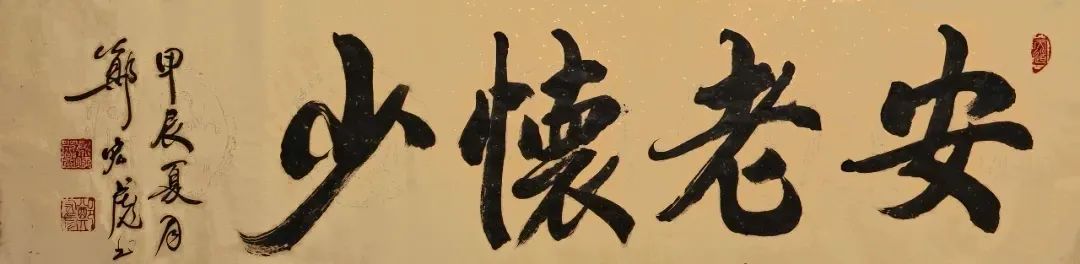 安老懷少
甲辰夏月
鄭宏彪书